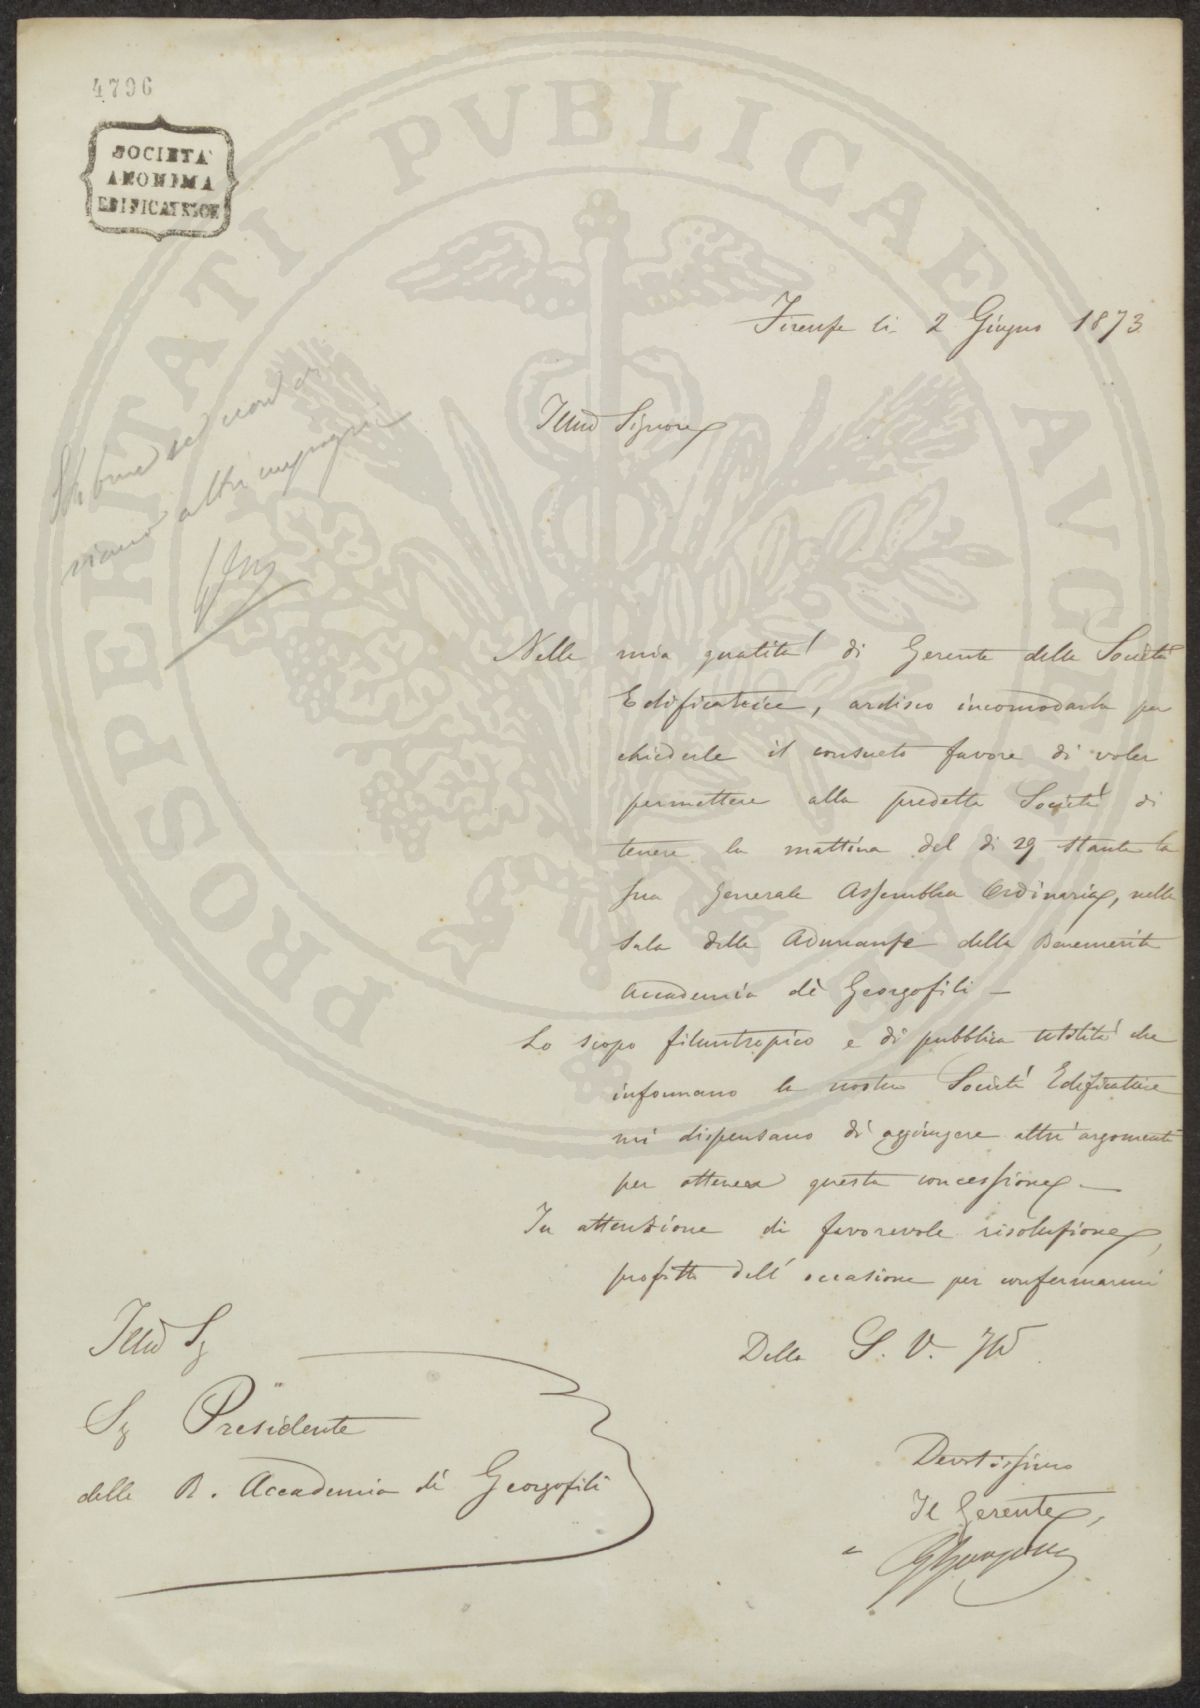 4796
SOCIETÀ
ANONIMA
EDIFICATRICE
PROSPERITATI PVBLICAE AVGENDAE
Firenze li 2 Giugno 1873
Illmo Signore
altri impegni
Nella mia qualità di Gerente della Società
Edificatrice, ardisco incomodarla per
chiederle il consueto favore di voler
permettere alla predetta Società di
tenere la mattina del di 29 stante la
sua Generale Assemblea Ordinaria, nella
Sala delle Adunanze della Benemerita
Accademia dei Georgofili —
Lo scopo filantropico e di pubblica utilità che
informano la nostra Società Edificatrice
mi dispensano di aggiungere altri argomenti
per ottenere questa concessione —
In attenzione di favorevole risoluzione,
profitto dell'occasione per confermarmi
Della S. V. Illma
Illmo Sg
Sg Presidente
della R. Accademia dei Georgofili
Devotissimo
Il Gerente,